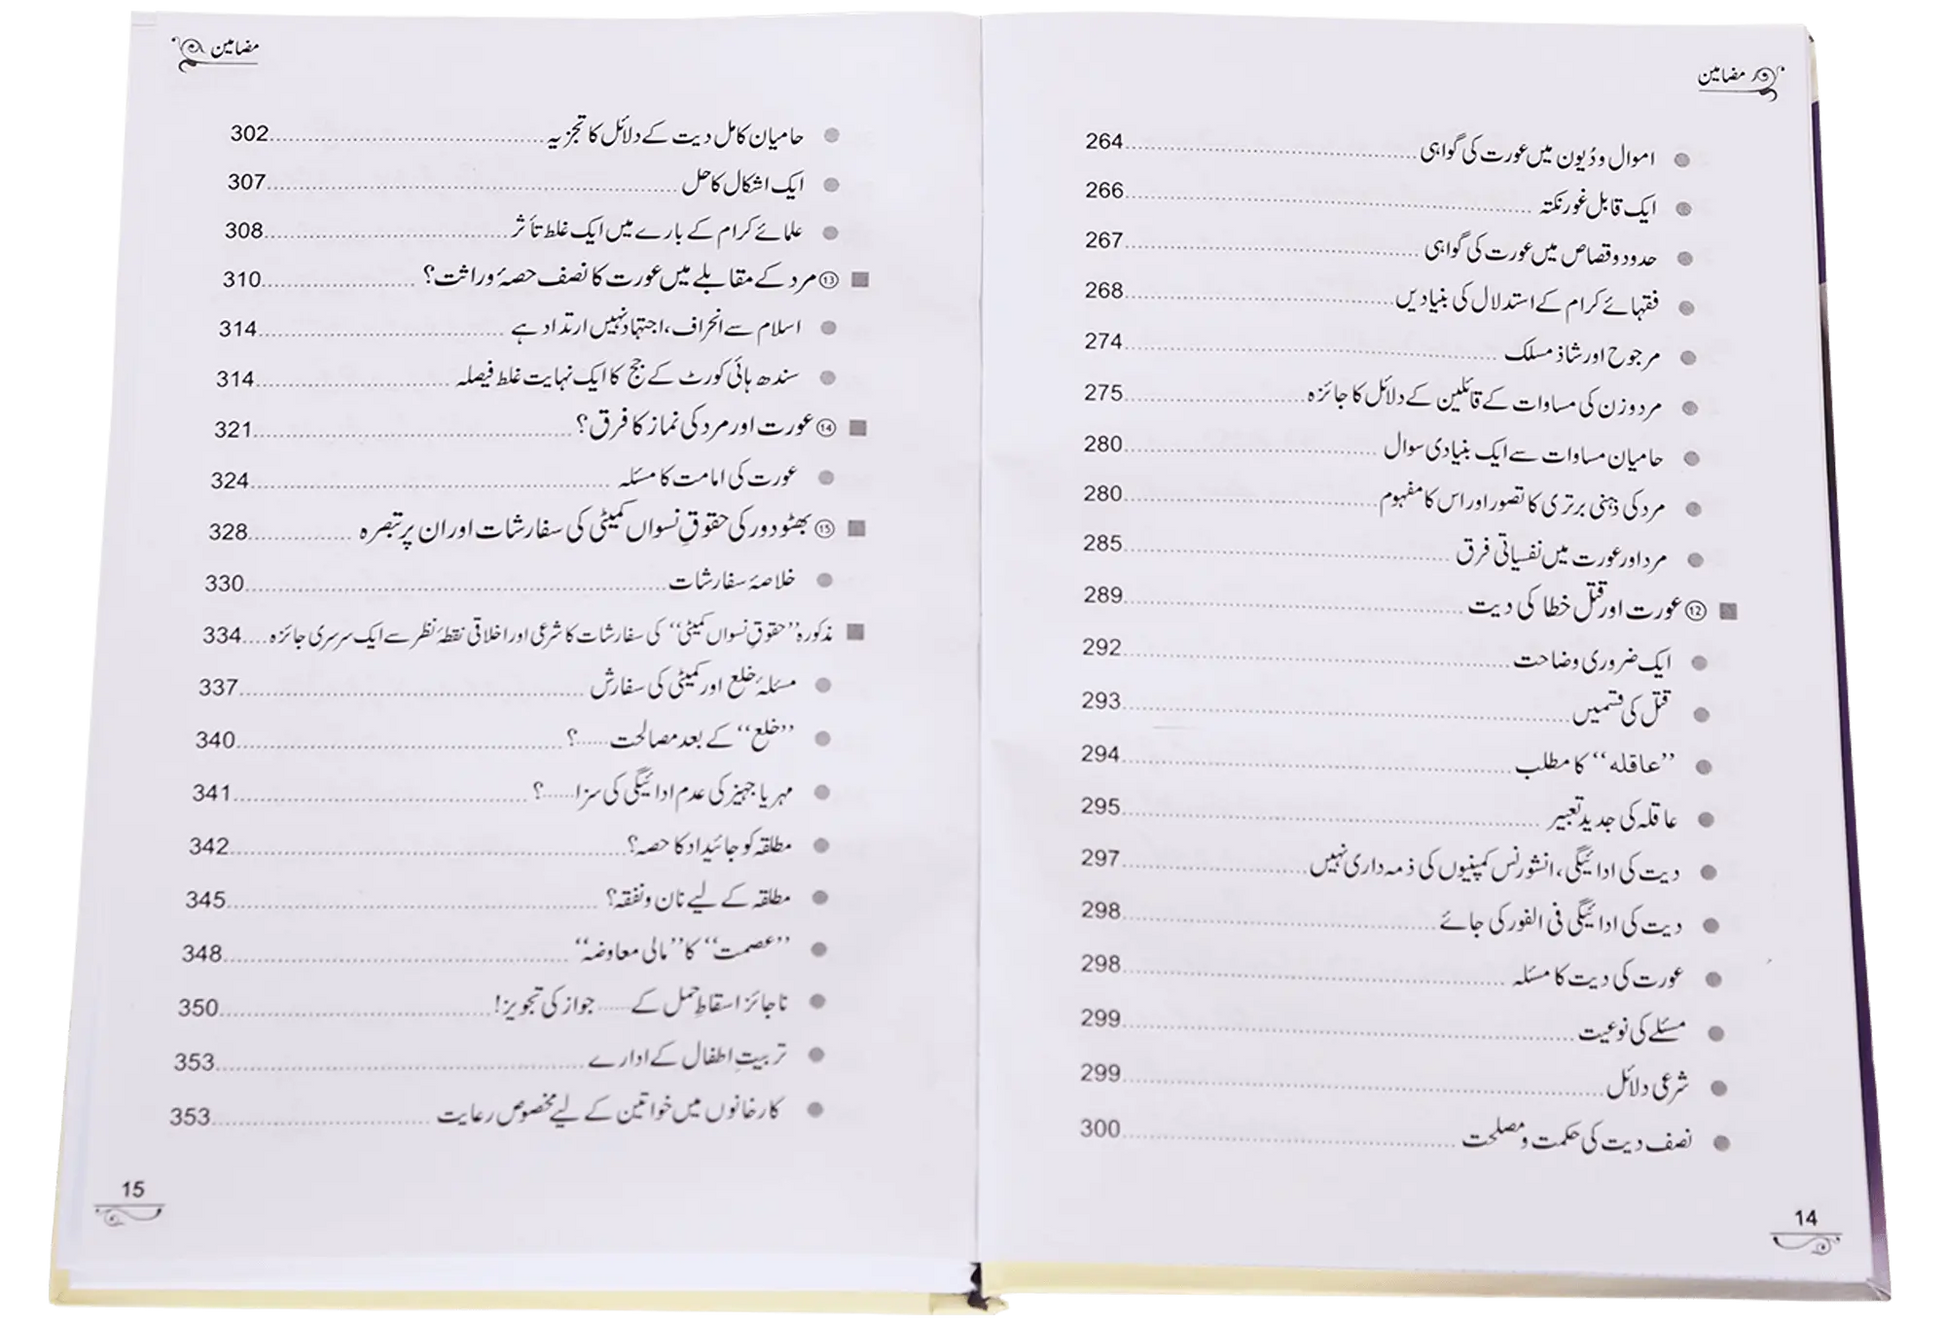 مضامین
اموال و دُیون میں عورت کی گواہی 264
ایک قابل غور نکتہ 266
حدود و قصاص میں عورت کی گواہی 267
فقہائے کرام کے استدلال کی بنیادیں 268
مرجوح اور شاذ مسلک 274
مرد وزن کی مساوات کے قائلین کے دلائل کا جائزہ 275
حامیان مساوات سے ایک بنیادی سوال 280
مرد کی ذہنی برتری کا تصور اور اس کا مفہوم 280
مرد اور عورت میں نفسیاتی فرق 285
⑫ عورت اور قتل خطا کی دیت 289
ایک ضروری وضاحت 292
قتل کی قسمیں 293
’’عاقلہ‘‘ کا مطلب 294
عاقلہ کی جدید تعبیر 295
دیت کی ادائیگی، انشورنس کمپنیوں کی ذمہ داری نہیں 297
دیت کی ادائیگی فی الفور کی جائے 298
عورت کی دیت کا مسئلہ 298
مسئلے کی نوعیت 299
شرعی دلائل 299
نصف دیت کی حکمت و مصلحت 300
14
مضامین
حامیان کامل دیت کے دلائل کا تجزیہ 302
ایک اشکال کا حل 307
علمائے کرام کے بارے میں ایک غلط تأثر 308
⑬ مرد کے مقابلے میں عورت کا نصف حصۂ وراثت؟ 310
اسلام سے انحراف، اجتہاد نہیں ارتداد ہے 314
سندھ ہائی کورٹ کے جج کا ایک نہایت غلط فیصلہ 314
⑭ عورت اور مرد کی نماز کا فرق؟ 321
عورت کی امامت کا مسئلہ 324
⑮ بھٹو دور کی حقوقِ نسواں کمیٹی کی سفارشات اور ان پر تبصرہ 328
خلاصۂ سفارشات 330
مذکورہ ’’حقوقِ نسواں کمیٹی‘‘ کی سفارشات کا شرعی اور اخلاقی نقطۂ نظر سے ایک سرسری جائزہ 334
مسئلۂ خلع اور کمیٹی کی سفارش 337
’’خلع‘‘ کے بعد مصالحت......؟ 340
مہر یا جہیز کی عدم ادائیگی کی سزا......؟ 341
مطلقہ کو جائیداد کا حصہ؟ 342
مطلقہ کے لیے نان و نفقہ؟ 345
’’عصمت‘‘ کا ’’مالی معاوضہ‘‘ 348
ناجائز اسقاطِ حمل کے...... جواز کی تجویز! 350
تربیتِ اطفال کے ادارے 353
کارخانوں میں خواتین کے لیے مخصوص رعایت 353
15